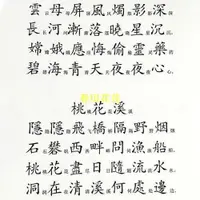 雲母屏風燭影深
長河漸落曉星沉
嫦娥應悔偷靈藥
碧海青天夜夜心
桃花溪
隱隱飛橋隔野烟
石磯西畔問漁船
桃花盡日隨流水
洞在清溪何處邊